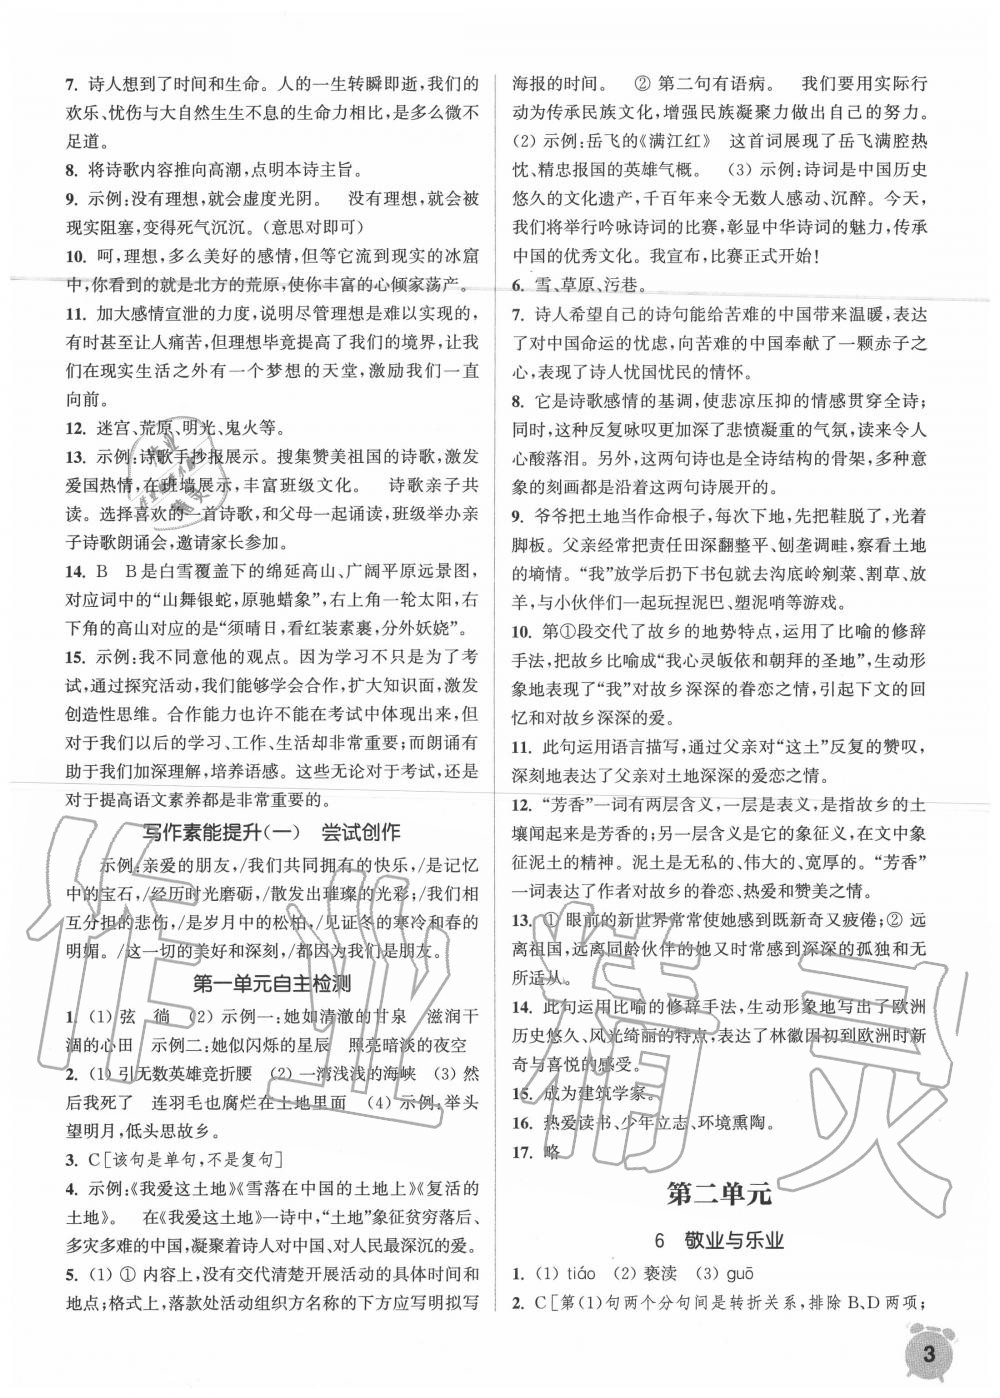 7. 诗人想到了时间和生命。人的一生转瞬即逝,我们的
欢乐、忧伤与大自然生生不息的生命力相比,是多么微不
足道。
8. 将诗歌内容推向高潮,点明本诗主旨。
9. 示例:没有理想,就会虚度光阴。 没有理想,就会被
现实阻塞,变得死气沉沉。(意思对即可)
10. 呵,理想,多么美好的感情,但等它流到现实的冰窟
中,你看到的就是北方的荒原,使你丰富的心倾家荡产。
11. 加大感情宣泄的力度,说明尽管理想是难以实现的,
有时甚至让人痛苦,但理想毕竟提高了我们的境界,让我
们在现实生活之外有一个梦想的天堂,激励我们一直
向前。
12. 迷宫、荒原、明光、鬼火等。
13. 示例:诗歌手抄报展示。搜集赞美祖国的诗歌,激发
爱国热情,在班墙展示,丰富班级文化。 诗歌亲子共
读。选择喜欢的一首诗歌,和父母一起诵读,班级举办亲
子诗歌朗诵会,邀请家长参加。
14. B B是白雪覆盖下的绵延高山、广阔平原远景图,
对应词中的“山舞银蛇,原驰蜡象”,右上角一轮太阳,右
下角的高山对应的是“须晴日,看红装素裹,分外妖娆”。
15. 示例:我不同意他的观点。因为学习不只是为了考
试,通过探究活动,我们能够学会合作,扩大知识面,激发
创造性思维。合作能力也许不能在考试中体现出来,但
对于我们以后的学习、工作、生活却非常重要;而朗诵有
助于我们加深理解,培养语感。这些无论对于考试,还是
对于提高语文素养都是非常重要的。
写作素能提升(一) 尝试创作
示例:亲爱的朋友,/我们共同拥有的快乐,/是记忆
中的宝石,/经历时光磨砺,/散发出璀璨的光彩;/我们相
互分担的悲伤,/是岁月中的松柏,/见证冬的寒冷和春的
明媚。/这一切的美好和深刻,/都因为我们是朋友。
第一单元自主检测
1. (1) 弦 徜 (2) 示例一:她如清澈的甘泉 滋润干
涸的心田 示例二:她似闪烁的星辰 照亮暗淡的夜空
2. (1) 引无数英雄竞折腰 (2) 一湾浅浅的海峡 (3) 然
后我死了 连羽毛也腐烂在土地里面 (4) 示例:举头
望明月,低头思故乡。
3. C[该句是单句,不是复句]
4. 示例:《我爱这土地》《雪落在中国的土地上》《复活的
土地》。 在《我爱这土地》一诗中,“土地”象征贫穷落后、
多灾多难的中国,凝聚着诗人对祖国、对人民最深沉的爱。
5. (1) ① 内容上,没有交代清楚开展活动的具体时间和
地点;格式上,落款处活动组织方名称的下方应写明拟写
海报的时间。 ② 第二句有语病。 我们要用实际行
动为传承民族文化,增强民族凝聚力做出自己的努力。
(2) 示例:岳飞的《满江红》 这首词展现了岳飞满腔热
忱、精忠报国的英雄气概。 (3) 示例:诗词是中国历史
悠久的文化遗产,千百年来令无数人感动、沉醉。今天,
我们将举行吟咏诗词的比赛,彰显中华诗词的魅力,传承
中国的优秀文化。我宣布,比赛正式开始!
6. 雪、草原、污巷。
7. 诗人希望自己的诗句能给苦难的中国带来温暖,表达
了对中国命运的忧虑,向苦难的中国奉献了一颗赤子之
心,表现了诗人忧国忧民的情怀。
8. 它是诗歌感情的基调,使悲凉压抑的情感贯穿全诗;
同时,这种反复咏叹更加深了悲愤凝重的气氛,读来令人
心酸落泪。另外,这两句诗也是全诗结构的骨架,多种意
象的刻画都是沿着这两句诗展开的。
9. 爷爷把土地当作命根子,每次下地,先把鞋脱了,光着
脚板。父亲经常把责任田深翻整平、刨垄调畦,察看土地
的墒情。“我”放学后扔下书包就去沟底岭剜菜、割草、放
羊,与小伙伴们一起玩捏泥巴、塑泥哨等游戏。
10. 第①段交代了故乡的地势特点,运用了比喻的修辞
手法,把故乡比喻成“我心灵皈依和朝拜的圣地”,生动形
象地表现了“我”对故乡深深的眷恋之情,引起下文的回
忆和对故乡深深的爱。
11. 此句运用语言描写,通过父亲对“这土”反复的赞叹,
深刻地表达了父亲对土地深深的爱恋之情。
12. “芳香”一词有两层含义,一层是表义,是指故乡的土
壤闻起来是芳香的;另一层含义是它的象征义,在文中象
征泥土的精神。泥土是无私的、伟大的、宽厚的。“芳香”
一词表达了作者对故乡的眷恋、热爱和赞美之情。
13. ① 眼前的新世界常常使她感到既新奇又疲倦;② 远
离祖国,远离同龄伙伴的她又时常感到深深的孤独和无
所适从。
14. 此句运用比喻的修辞手法,生动形象地写出了欧洲
历史悠久、风光绮丽的特点,表达了林徽因初到欧洲时新
奇与喜悦的感受。
15. 成为建筑学家。
16. 热爱读书、少年立志、环境熏陶。
17. 略
第二单元
6 敬业与乐业
1. (1) tiáo (2) 亵渎 (3) guō
2. C[第(1)句两个分句间是转折关系,排除B、D两项;
3
作业精灵